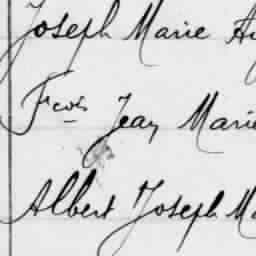 Joseph Marie
Fcois Jean Marie
Albert Joseph